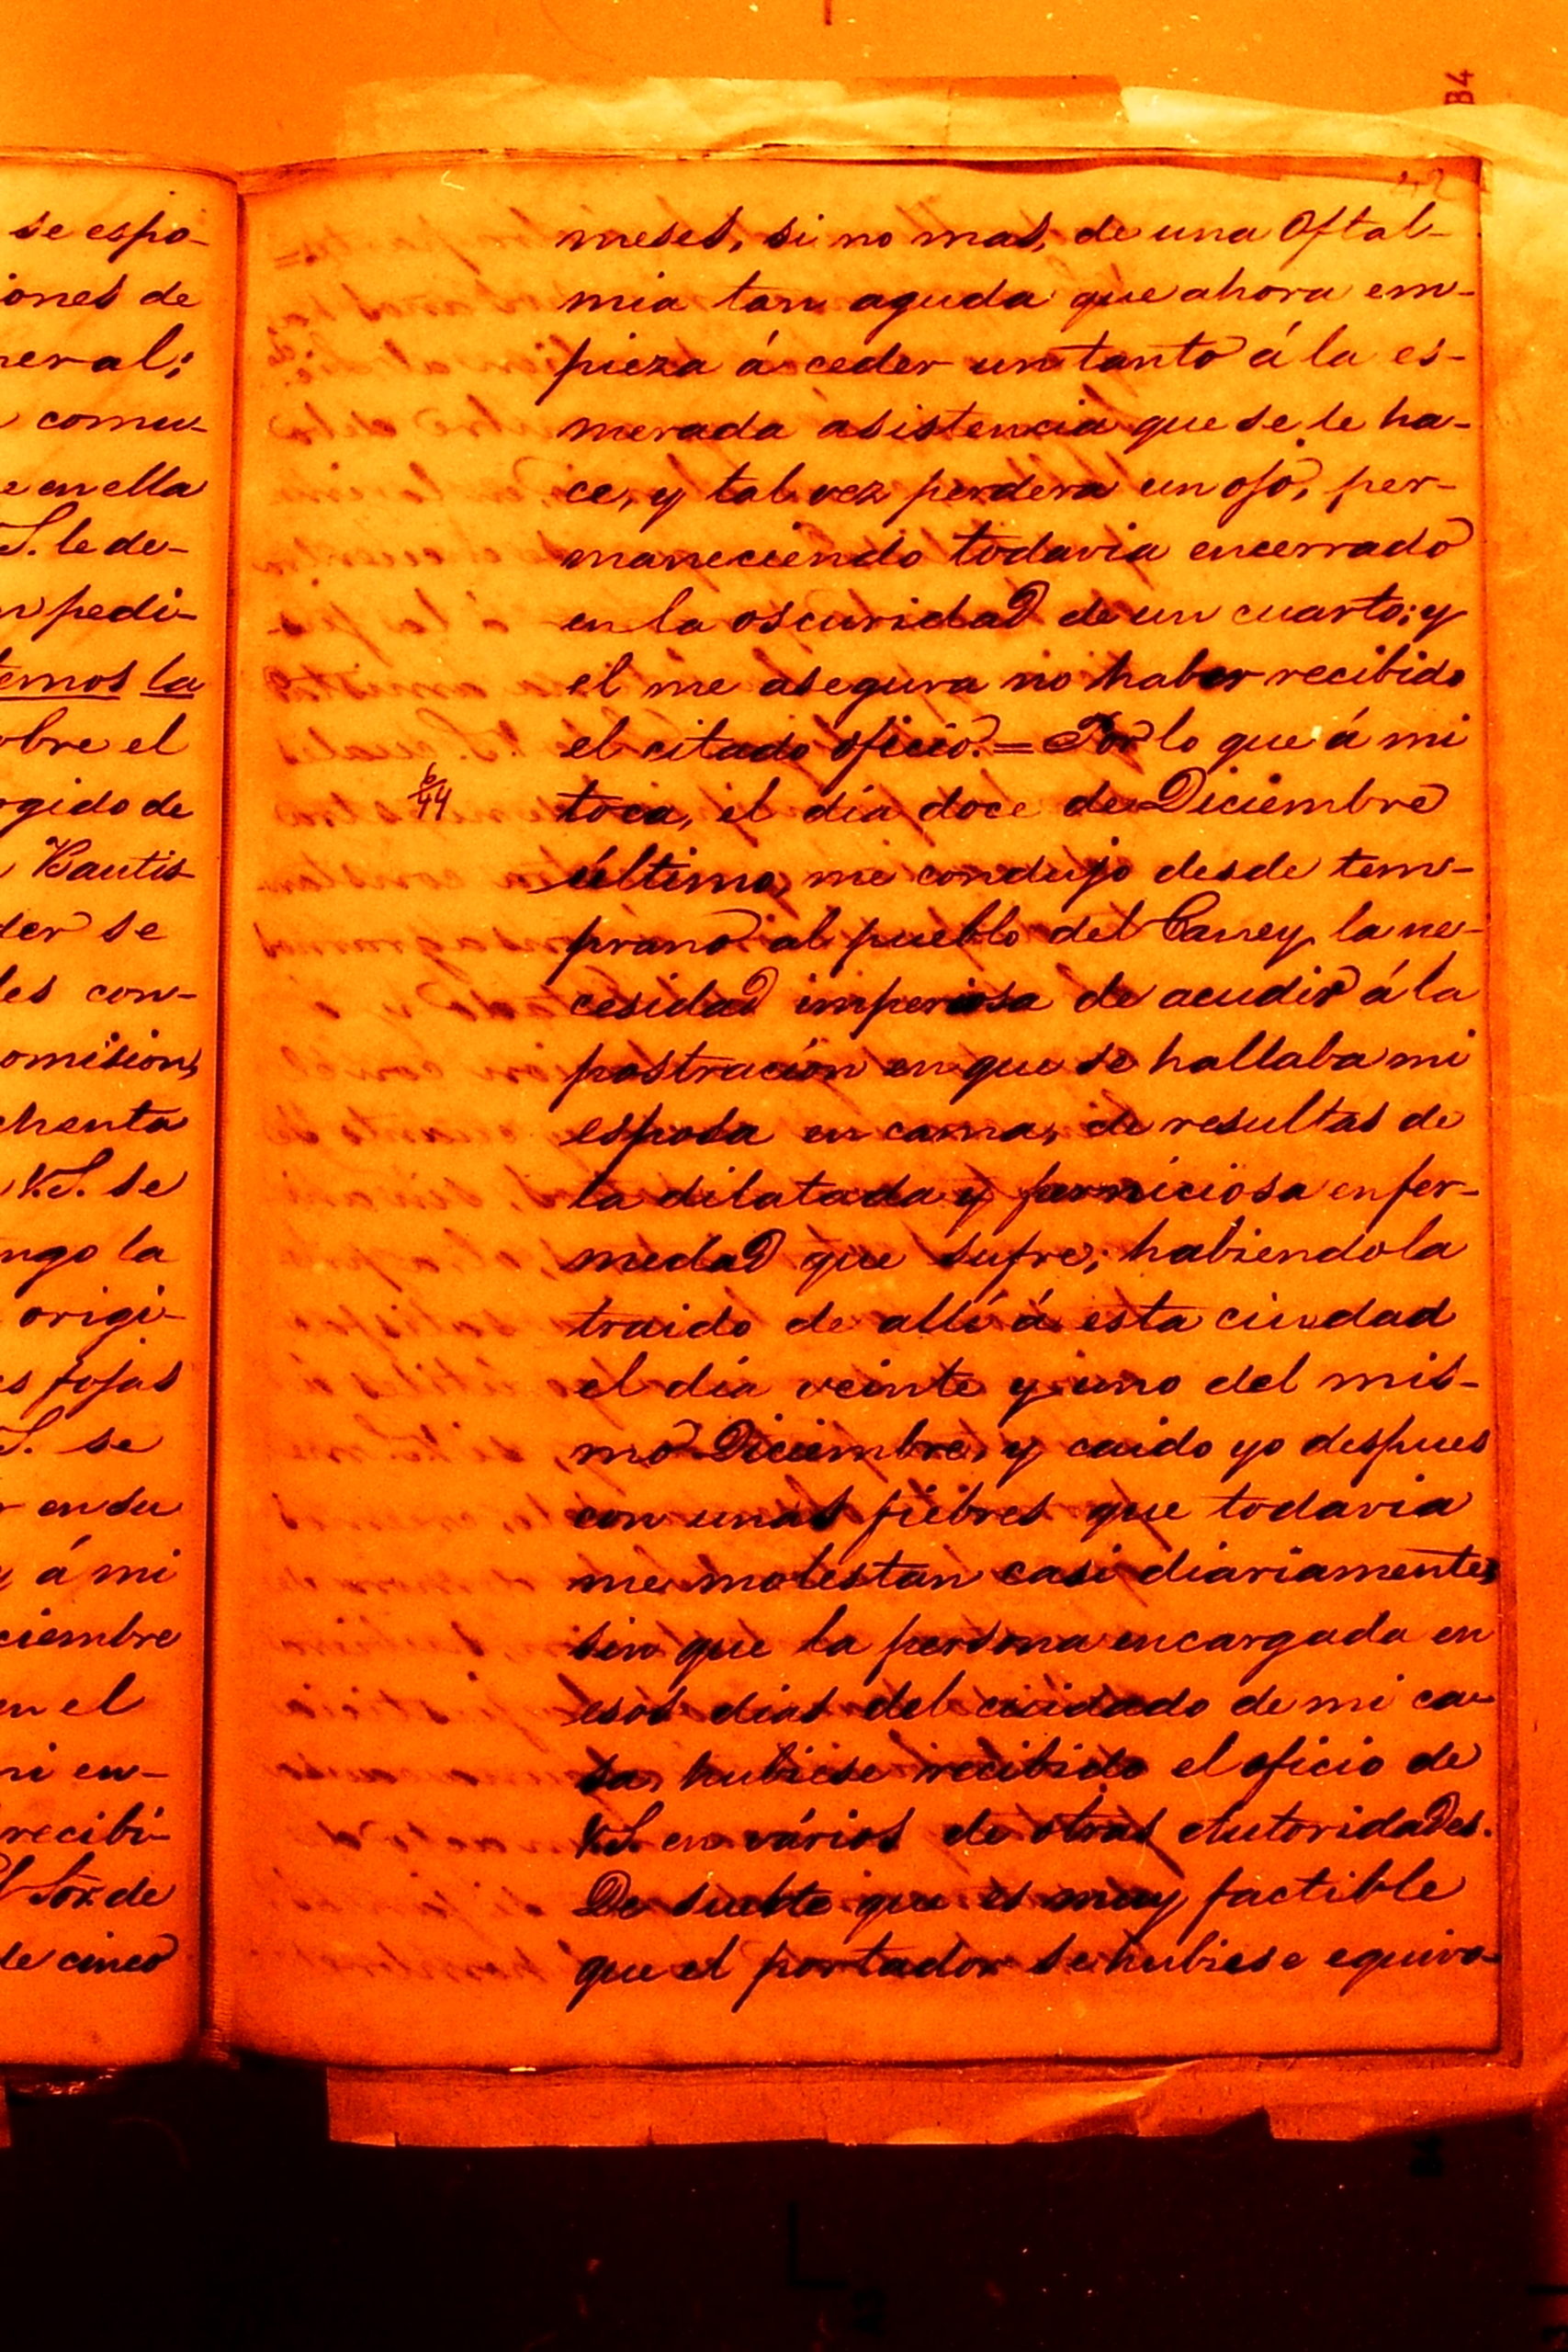 se espo-
iones de
neral;
comu-
e en ella
S. le de-
n pedi-
temos la
obre el
rgido de
Bautis
der se
les con-
omision,
chenta
V.S. se
ngo la
origi-
es fojas
S. se
r en su
y á mi
ciembre
en el
ni en-
recibi-
Sor. de
de cinco
42
meses, si no mas, de una Oftal-
mia tan aguda que ahora em-
pieza á ceder un tanto á la es-
merada asistencia que se le ha-
ce, y tal vez perdera un ojo, per-
maneciendo todavia encerrado
en la oscuridad de un cuarto; y
el me asegura no haber recibido
el citado oficio. = Por lo que á mi
6/44
toca, el dia doce de Diciembre
último, me condujo desde tem-
prano al pueblo del Caney, la ne-
cesidad imperiosa de acudir á la
postracion en que se hallaba mi
esposa en cama, de resultas de
la dilatada y perniciosa enfer-
medad que sufre; habiendola
traido de allí á esta ciudad
el dia veinte y uno del mis-
mo Diciembre, y caido yo despues
con unas fiebres que todavia
me molestan casi diariamente,
sin que la persona encargada en
esos dias del cuidado de mi ca-
sa, hubiese recibido el oficio de
V.S. en vários de otras Autoridades.
De suerte que es muy factible
que el portador se hubiese equivo-
B4